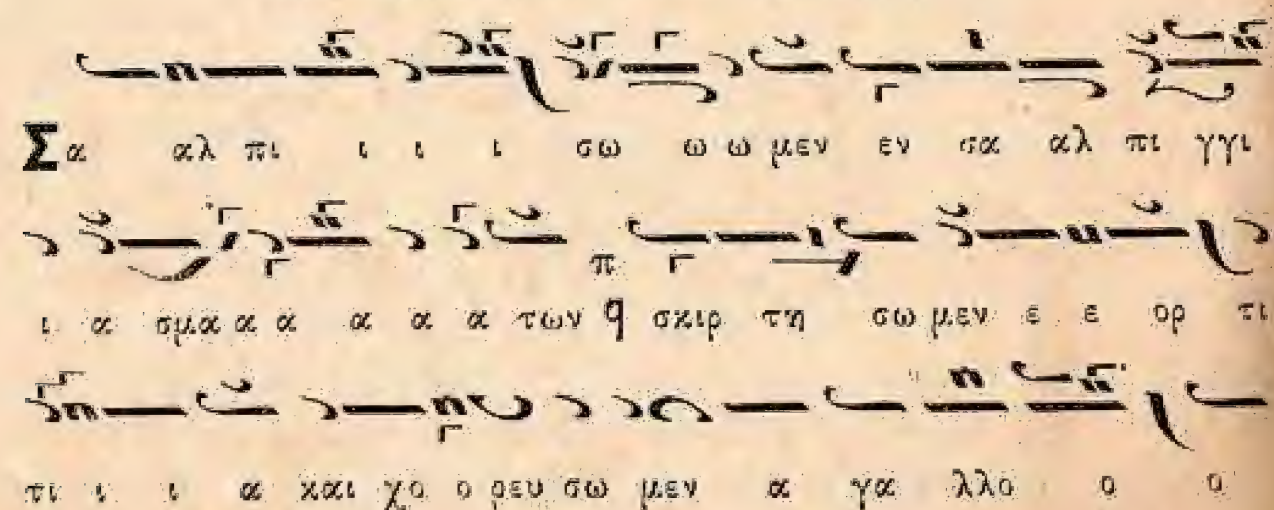 Σα αλ πι ι ι ι σω ω ω μεν εν σα αλ πι γγι
ι α σμα α α α α α των π q σκιρ τη σω μεν ε ε ορ τι
τι ι ι α και χο ο ρευ σω μεν α γα λλο ο ο